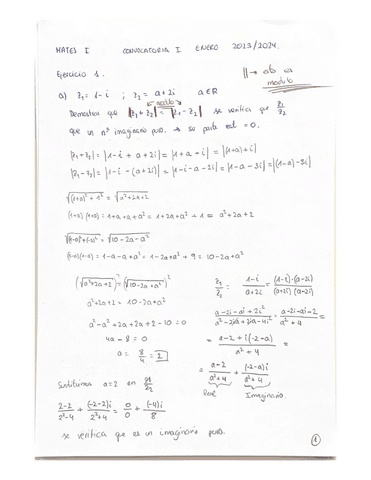 MATES I CONVOCATORIA I ENERO 2023/2024.
Ejercicio 1.
|| → ab es modulo
a) z₁ = 1-i ; z₂ = a+2i a∈R
modulo
Demostrar que |z₁+z₂| = |z₁-z₂| se verifica que z₁/z₂
que un nº imaginario puro. → su parte real = 0.
|z₁+z₂| = |1-i + a+2i| = |1+a+i| = |(1+a)+i|
|z₁-z₂| = |1-i-(a+2i)| = |1-i-a-2i| = |1-a-3i| = |(1-a)-3i|
√(1+a)²+1² = √a²+2a+2
(1+a)(1+a) = 1+a+a+a² = 1+2a+a²+1 = a²+2a+2
√(1-a)²+(-3)² = √10-2a-a²
(1-a)(1-a) = 1-a-a+a² = 1-2a+a²+9 = 10-2a+a²
(√a²+2a+2)² = (√10-2a+a²)²
a²+2a+2 = 10-2a+a²
a²-a²+2a+2a+2-10 = 0
4a-8 = 0
a = 8/4 = 2
z₁/z₂ = 1-i/a+2i = (1-i)·(a-2i)/(a+2i)(a-2i)
a-2i-ai+2i²/a²-2ai+2ai-4i² = a-2i-ai-2/a²+4
= a-2+i(-2-a)/a²+4 =
= a-2/a²+4 + (-2-a)i/a²+4
Real Imaginario.
Sustituimos a=2 en z₁/z₂
2-2/2²-4 + (-2-2)i/2²+4 = 0/0 + (-4)i/8
se verifica que es un imaginario puro.
1